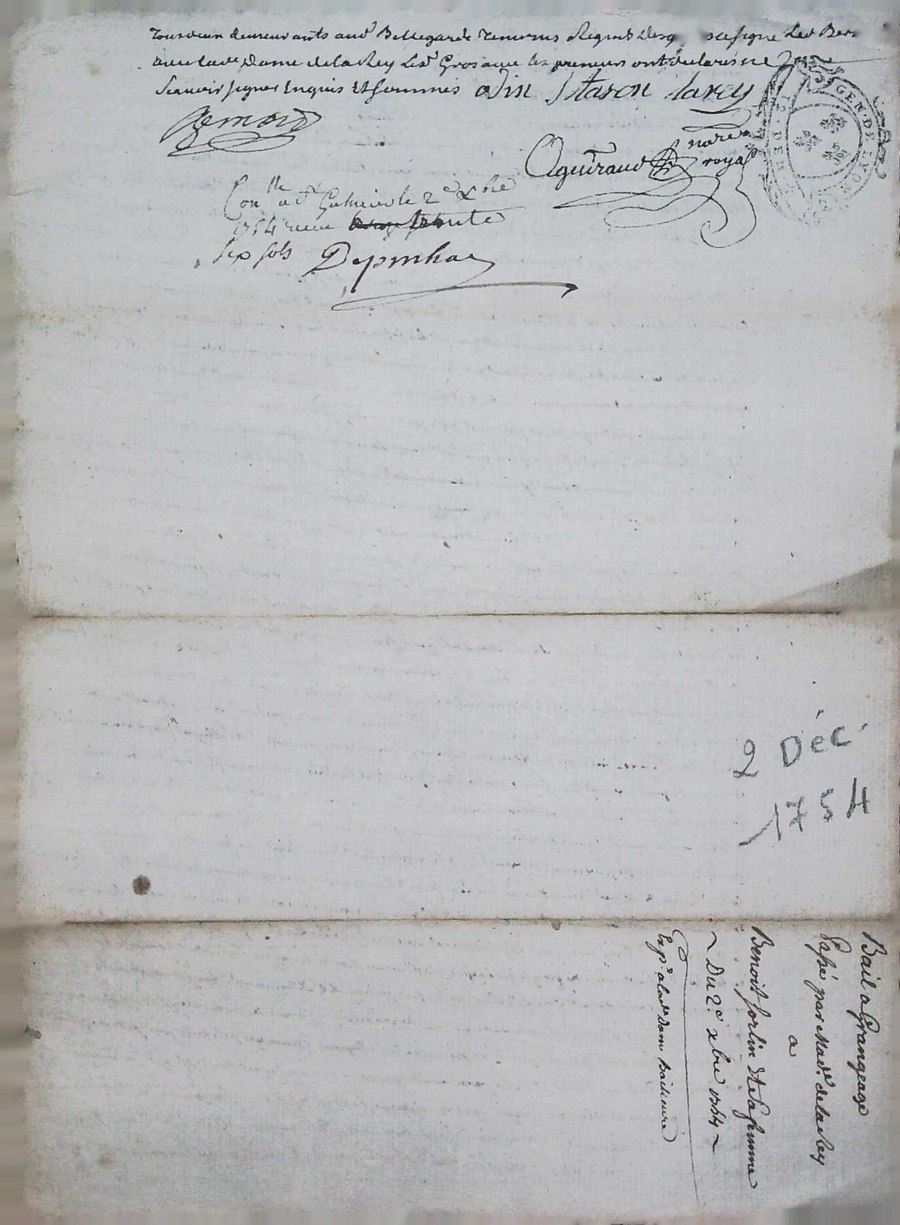 Tous deux demeurants aud. Bellegarde Temoins Requis Lesq. signé Led. Ber
avec lad. Dame de la Rey Led. Gros avec les preneurs ont déclarés ne
Scavoir signer Enquis et sommés odin Staron larey
Remond
Aguiraud
nore
royal
GEN. DE LYON
Conlle a St Galmier le 2e Xbre
1754 recu
Six sols Depinhac
2 Déc.
1754
Bail a Grangeage
passé par Made. de la Rey
a
Benoit forlin et sa femme
~ Du 2e xbre 1754 ~
Exp. a lad. Dam Bailleure